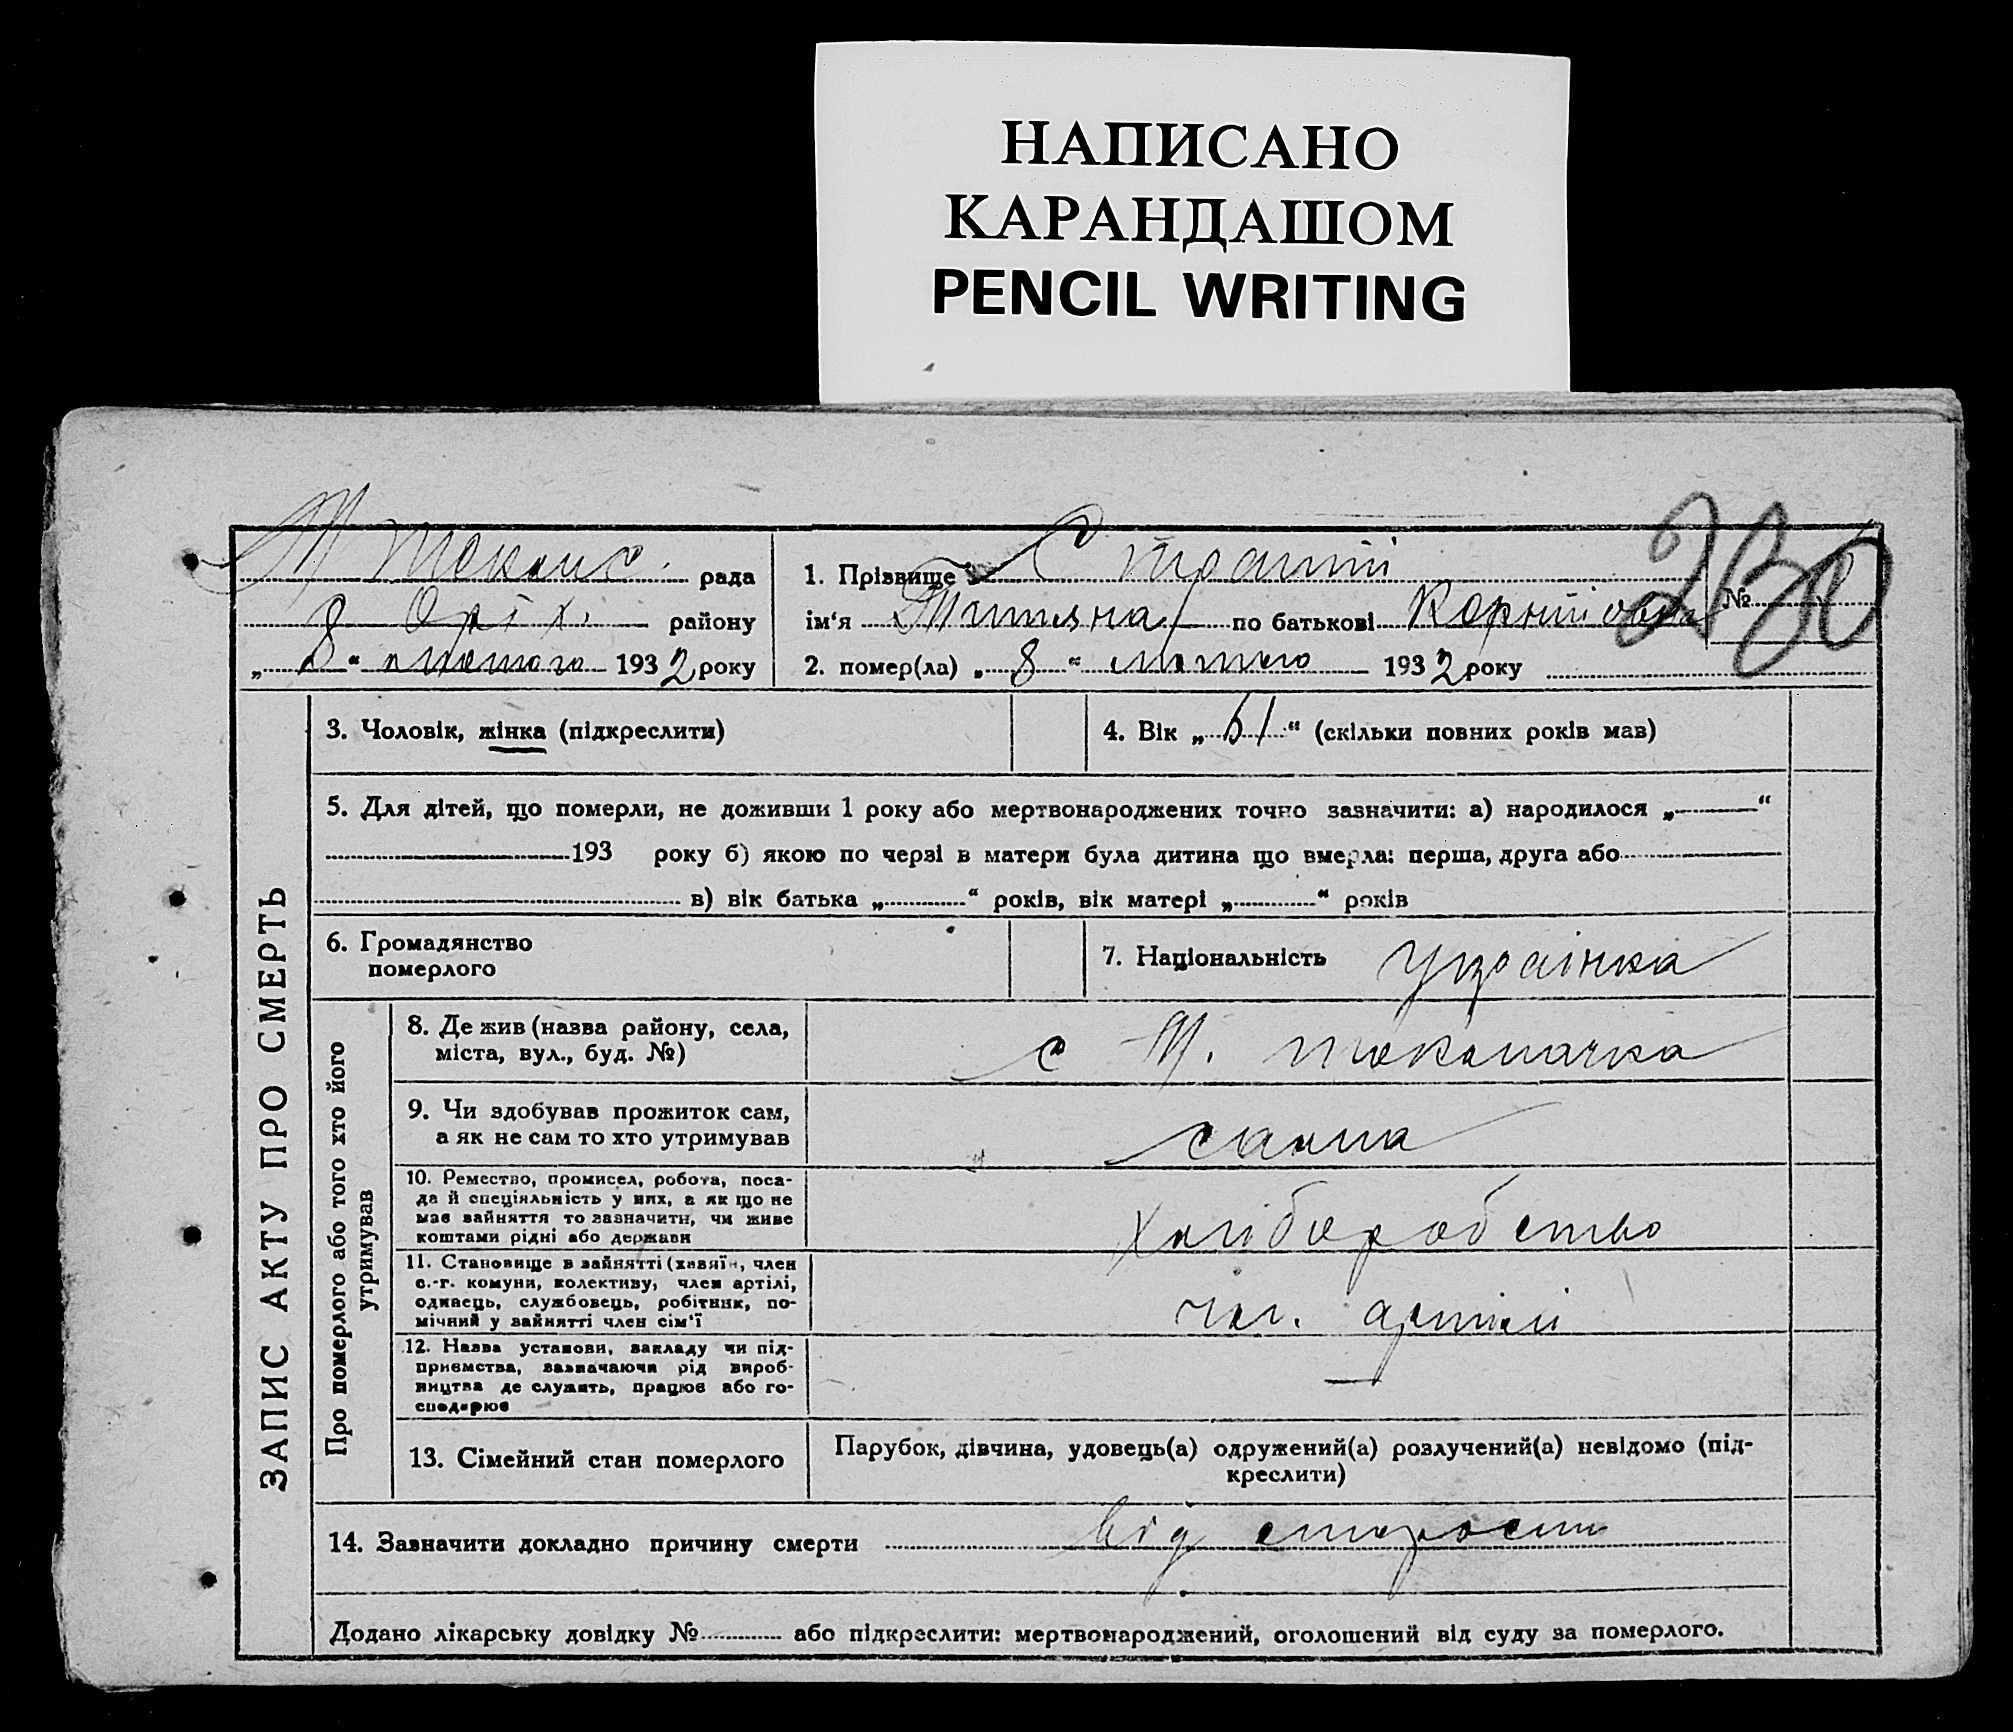 НАПИСАНО
КАРАНДАШОМ
PENCIL WRITING
230
М Токмач. рада
Оріх. району
„ 8 “ лютого 1932 року
1. Прізвище №
ім‘я Тетяна по батькові
2. помер(ла) „ 8 “ лютого 1932 року
ЗАПИС АКТУ ПРО СМЕРТЬ
3. Чоловік, жінка (підкреслити)
4. Вік „ 61 “ (скільки повних років мав)
5. Для дітей, що померли, не доживши 1 року або мертвонароджених точно зазначити: а) народилося „ “
193 року б) якою по черзі в матери була дитина що вмерла: перша, друга або
в) вік батька „ “ років, вік матері „ “ років
6. Громадянство
померлого
7. Національність Українка
Про померлого або того хто його
утримував
8. Де жив (назва району, села,
міста, вул., буд. №)
с М. Токмачка
9. Чи здобував прожиток сам,
а як не сам то хто утримував
сама
10. Ремество, промисел, робота, поса-
да й спеціяльність у них, а як що не
має зайняття то зазначити, чи живе
коштами рідні або держави
Хліборобство
11. Становище в зайнятті (хазяїн, член
с.-г. комуни, колективу, член артілі,
одинець, службовець, робітник, по-
мічний у зайнятті член сім‘ї
чл. артілі
12. Назва установи, закладу чи під-
приємства, зазначаючи рід вироб-
ництва де служить, працює або го-
сподарює
—
13. Сімейний стан померлого
Парубок, дівчина, удовець(а) одружений(а) розлучений(а) невідомо (під-
креслити)
14. Зазначити докладно причину смерти від старости
Додано лікарську довідку № або підкреслити: мертвонароджений, оголошений від суду за померлого.